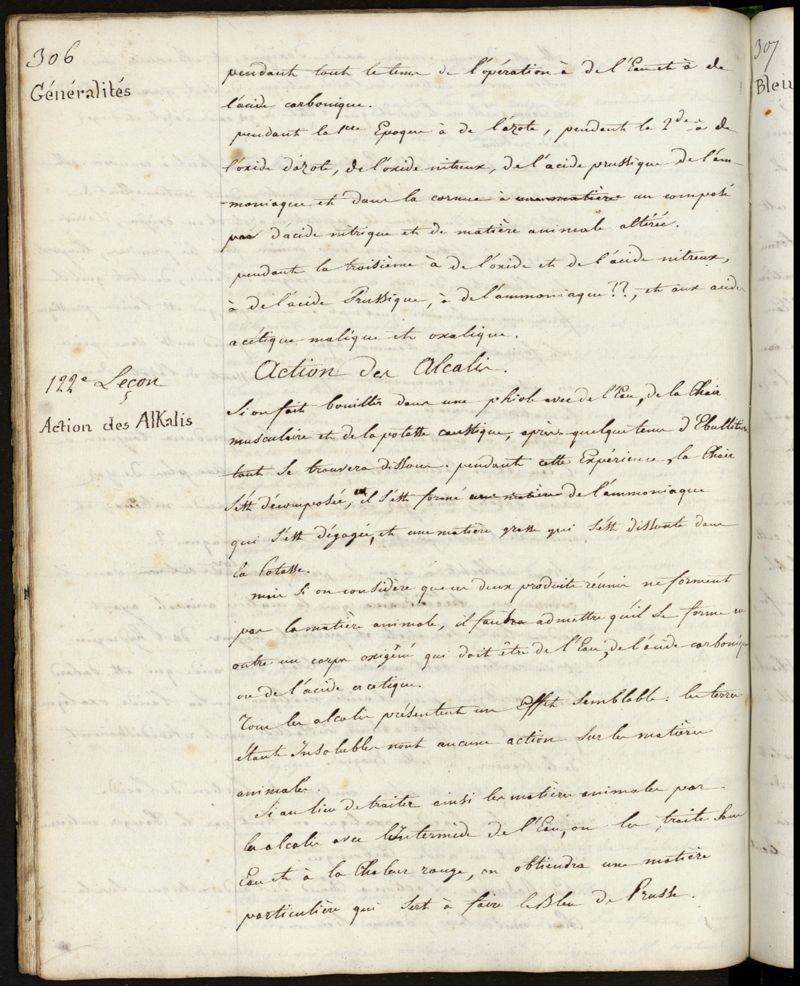 306
Généralités
pendant tout le tems de l'opération à de l'Eau et à de
l'acide carbonique.
pendant la 1ere Epoque à de l'azote, pendant le 2de à de
l'oxide d'azote, de l'oxide nitreux, de l'acide prussique de l'am-
-moniaque et dans la cornue à une matière un composé
par d'acide nitrique et de matière animale altérée.
pendant la troisième à de l'oxide et de l'acide nitreux,
à de l'acide Prussique, à de l'ammoniaque??, et aux acides
acétique malique et oxalique.
122e Leçon
Action des Alcalis.
Action des Alkalis
Si on fait bouillir dans une phiole avec de l'Eau, de la Chair
musculaire et de la potasse caustique, après quelque tems d'Ebullition
tout se trouvera dissous. pendant cette Expérience, la Chair
s'est décomposée, et il s'est formé une matière de l'ammoniaque
qui s'est dégagée, et une matière grasse qui s'est dissoute dans
la Potasse.
mais si on considère que ces deux produits réunis ne forment
pas la matière animale, il faudra admettre qu'il se forme en
outre un corps oxigéné qui doit être de l'Eau, de l'acide carbonique
ou de l'acide acetique.
Tous les alcalis présentent un Effet semblable: les terres
étant Insolubles n'ont aucune action sur les matières
animales.
Si au lieu de traiter ainsi les matières animales par
les alcalis avec l'Intermède de l'Eau, on les traite sans
Eau et à la Chaleur rouge, on obtiendra une matière
particulière qui sert à faire le Bleu de Prusse.
307
Bleu